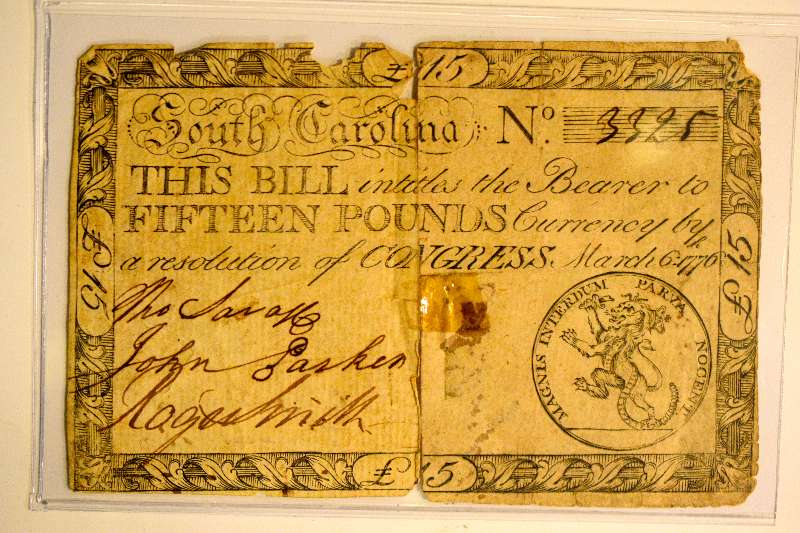 £ 15
South Carolina No. 3325
THIS BILL intitles the Bearer to
FIFTEEN POUNDS Currency by
a resolution of CONGRESS. March 6th 1776
£ 15
£ 15
Tho Savage
John Parker
Roger Smith
MAGNIS INTERDUM PARVA NOCENT
£ 15